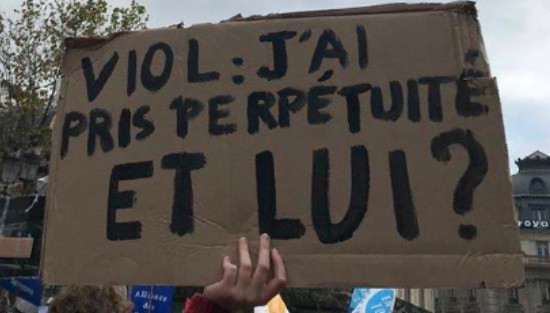 VIOL : J'AI
PRIS PERPÉTUITÉ
ET LUI ?
Alliance
des